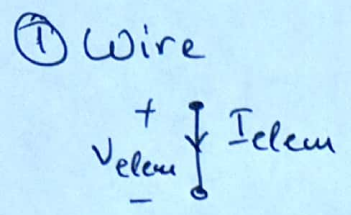 ① Wire
+
Velem Ielem
-